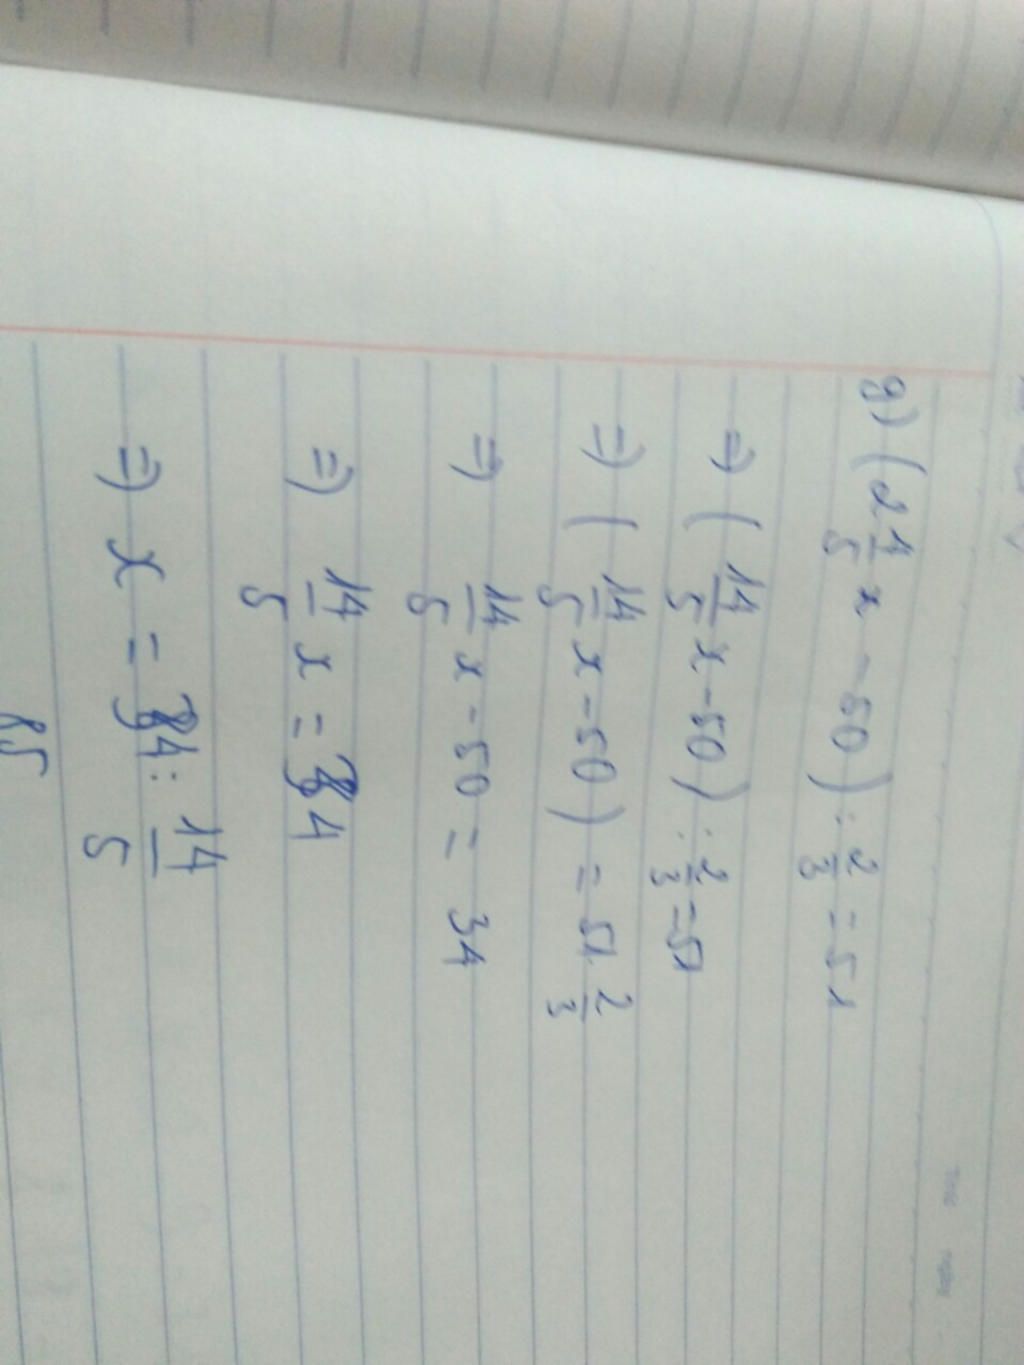 g) (2 4/5 x - 50) : 2/3 = 51
=> (14/5 x - 50) : 2/3 = 51
=> (14/5 x - 50) = 51. 2/3
=> 14/5 x - 50 = 34
=> 14/5 x = 84
=> x = 84 : 14/5